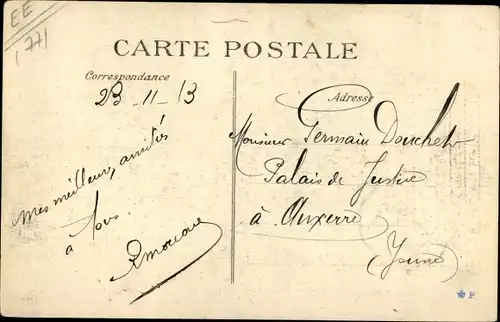 EE
(77)
CARTE POSTALE
Correspondance
Adresse
23 - 11 - 13
Mes meilleurs amitiés
à tous.
Monsieur Germain Douchet
Palais de Justice
à Auxerre
(Yonne)
P